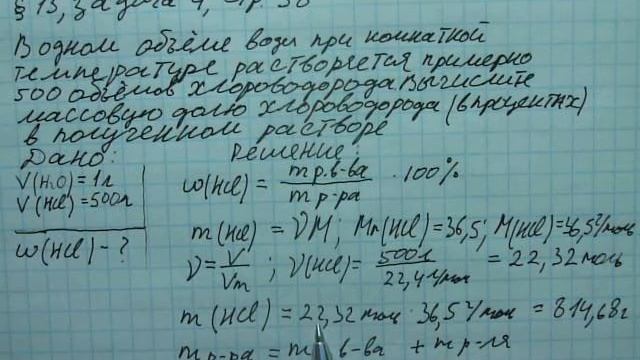 § 13, задача 4, стр. 58
В одном объёме воды при комнатной
температуре растворяется примерно
500 объёмов хлороводорода. Вычислите
массовую долю хлороводорода (в процентах)
в полученном растворе
Дано: Решение:
V(H₂O) = 1л
V(HCl) = 500л
ω(HCl) - ?
ω(HCl) = m р.в-ва / m р-ра · 100%
m(HCl) = νM; Mr(HCl)=36,5; M(HCl)=36,5г/моль
ν = V/Vm; ν(HCl) = 500л / 22,4л/моль = 22,32 моль
m(HCl) = 22,32 моль · 36,5 г/моль = 814,68г
m р-ра = m р. в-ва + m р-ля